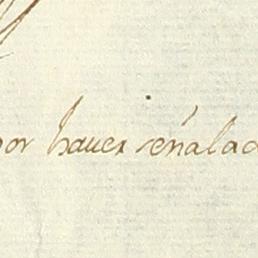 por haver señalad